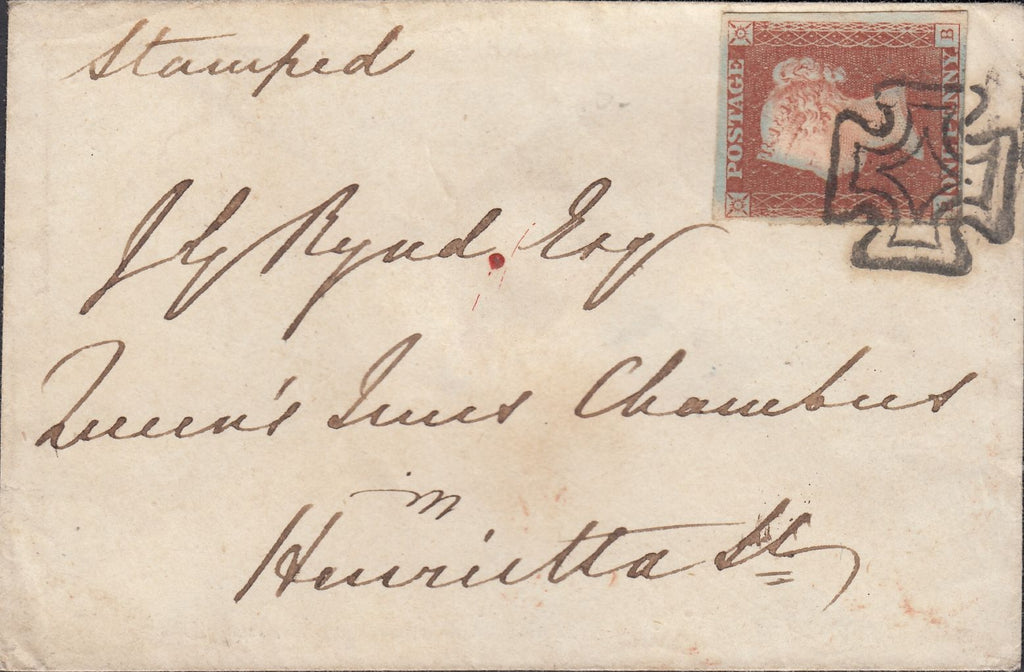 Stamped
POSTAGE
B
J G Rynd. Esq
Queen's Inns Chambers
in
Henrietta St